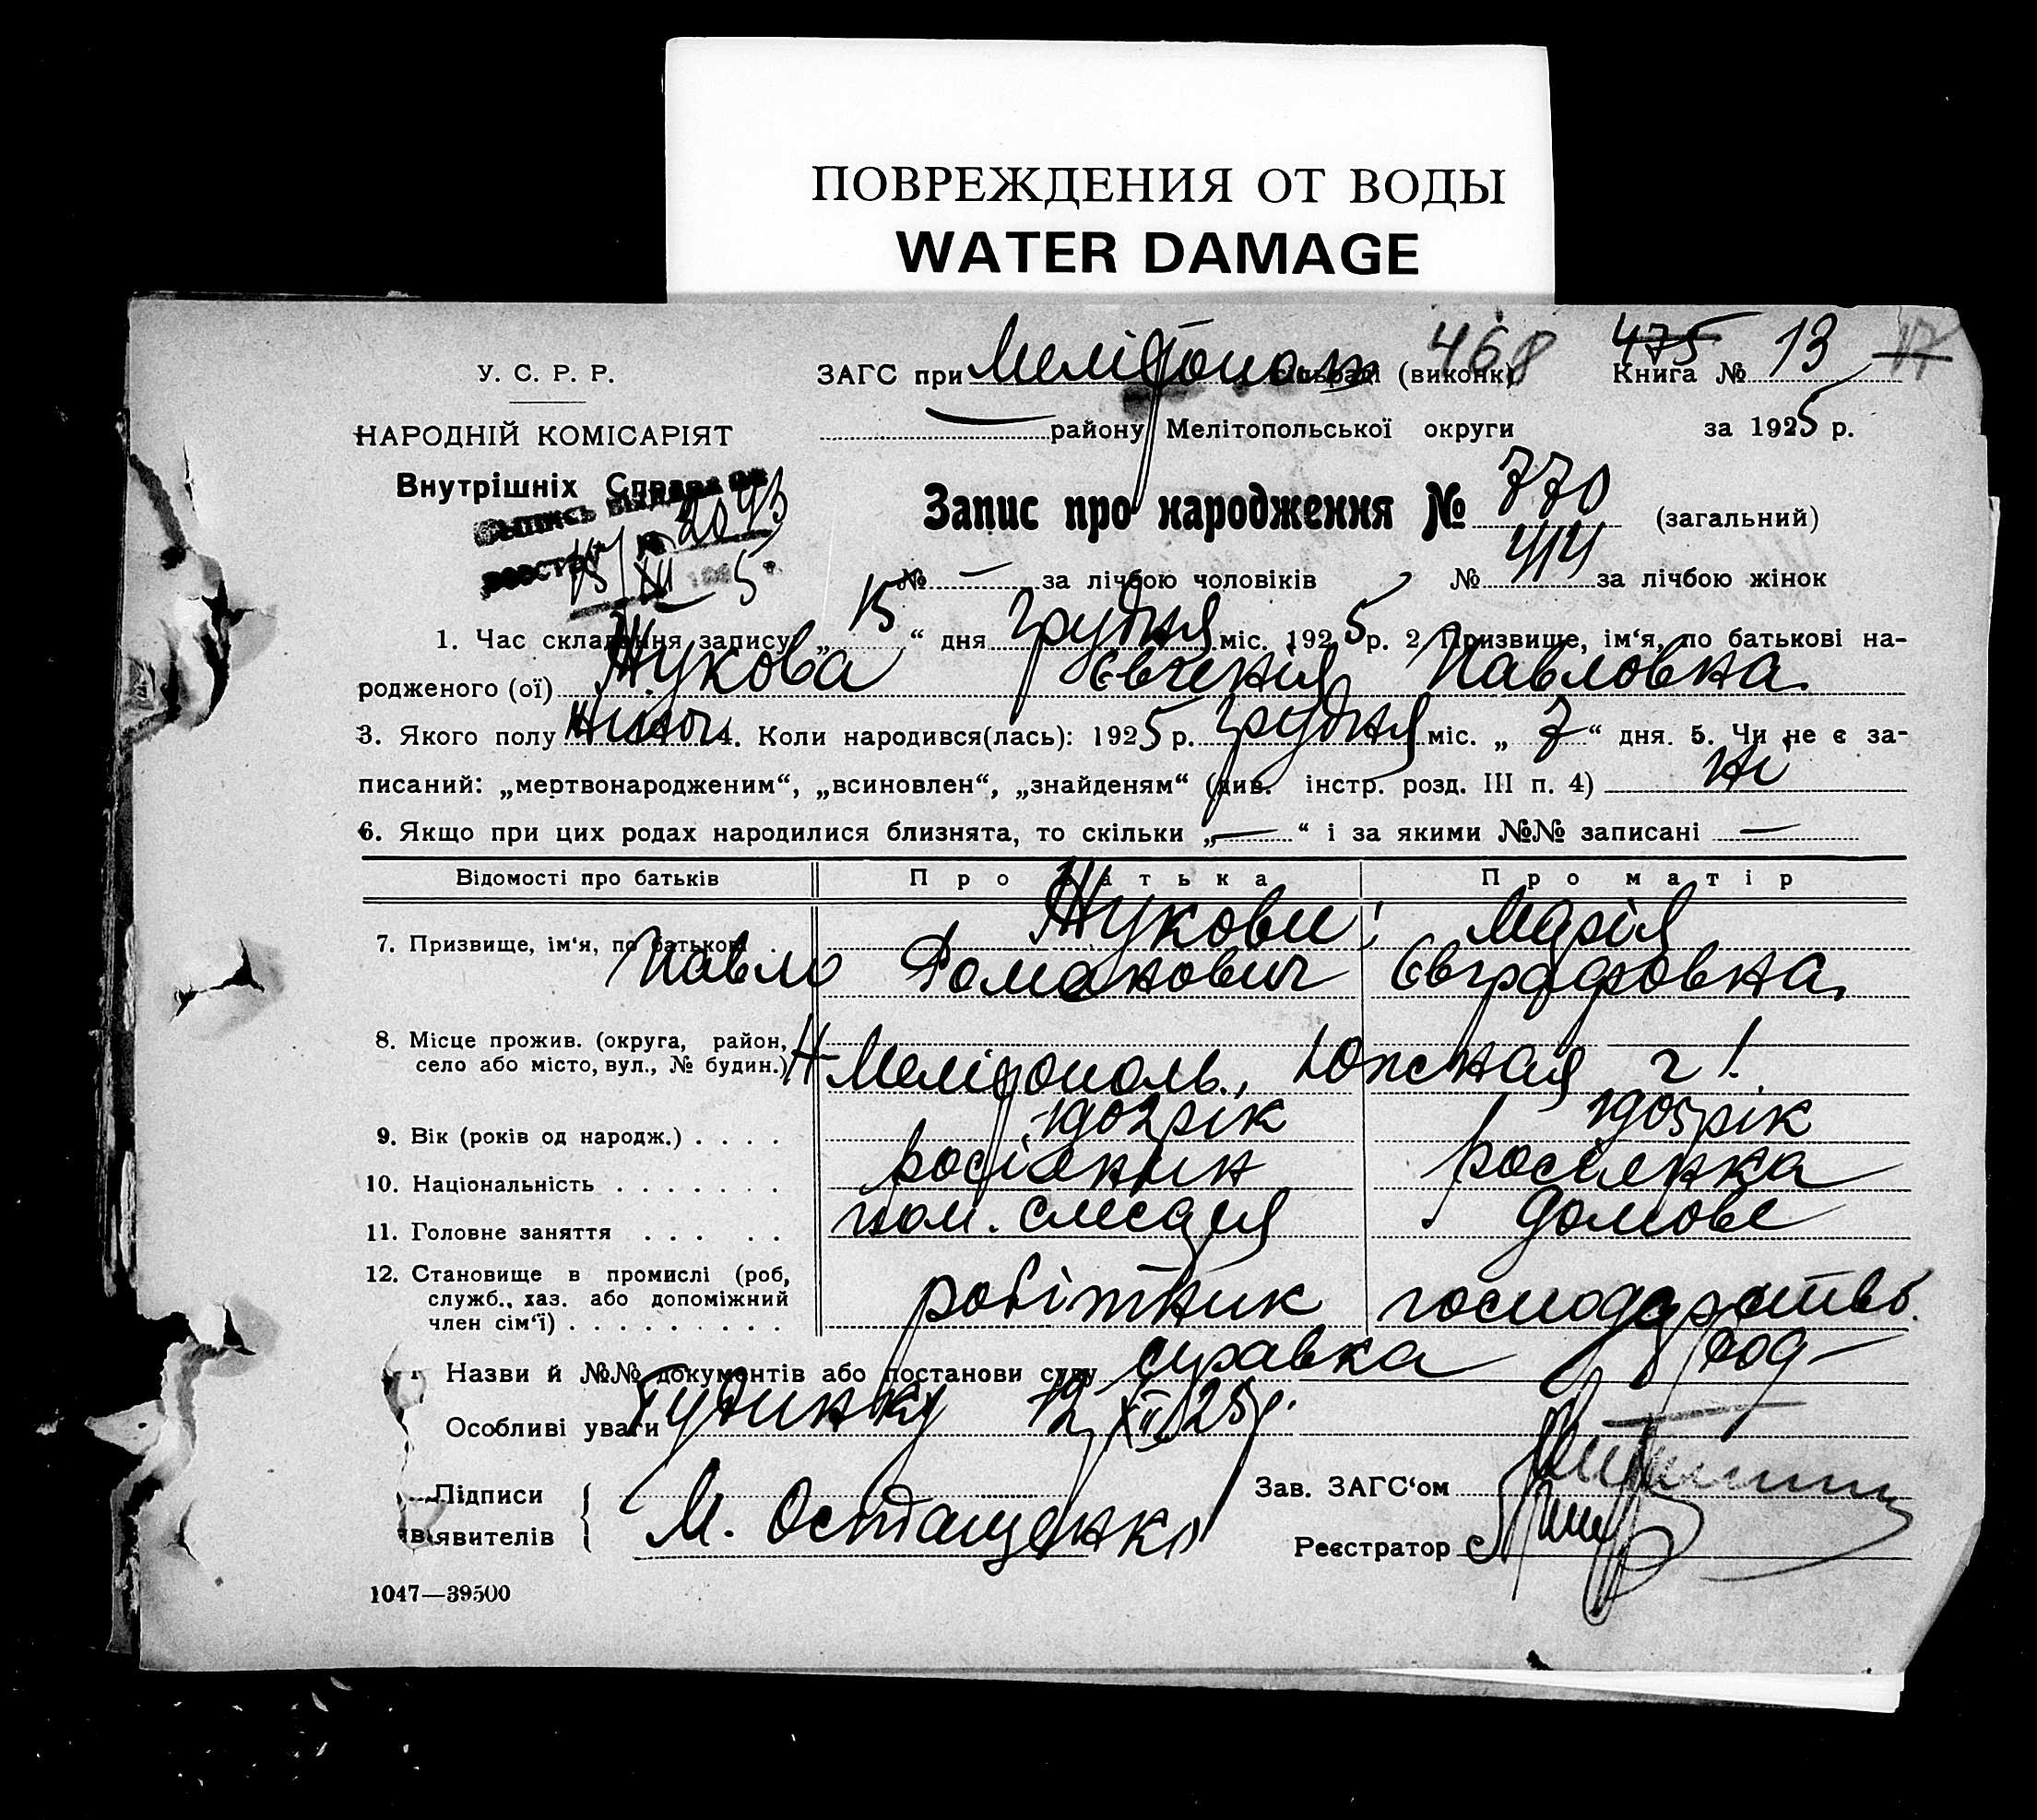 ПОВРЕЖДЕНИЯ ОТ ВОДЫ
WATER DAMAGE
468 475 17
У. С. Р. Р.
ЗАГС при Мелітополь (виконк) Книга № 13
НАРОДНІЙ КОМІСАРІЯТ
району Мелітопольської округи за 1925 р.
Внутрішніх Справ
Запис про народження № 770 (загальний)
№ 2093
15/XII 1925
№ — за лічбою чоловіків № 414 за лічбою жінок
1. Час складення запису: „15“ дня грудня міс. 1925 р. 2. Призвище, ім‘я, по батькові на-
родженого (ої) Жукова Євгенія Павловна
3. Якого полу жіноч. 4. Коли народився(лась): 1925 р. грудня міс. „7“ дня. 5. Чи не є за-
писаний: „мертвонародженим“, „всиновлен“, „знайденям“ (див. інстр. розд. III п. 4) ні
6. Якщо при цих родах народилися близнята, то скільки „—“ і за якими №№ записані —
Відомості про батьків Про батька Про матір
7. Призвище, ім‘я, по батькові . Жукови: Марія
Павло Романович Євграфовна
8. Місце прожив. (округа, район,
село або місто, вул., № будин.) Мелітополь,
9. Вік (років од народж.) . . . . 1902 рік 1905 рік
10. Національність . . . . . . . росіянин росіянка
11. Головне заняття . . . . . пом. слесаря домове
12. Становище в промислі (роб,
служб., хаз. або допоміжний
член сім‘ї) . . . . . . . . . робітник господарство
Назви й №№ документів або постанови суду справка род-
Особливі уваги будинку 12/XII 25 р.
Підписи
явителів М. Осташенко
Зав. ЗАГС‘ом
Реєстратор
1047—39500